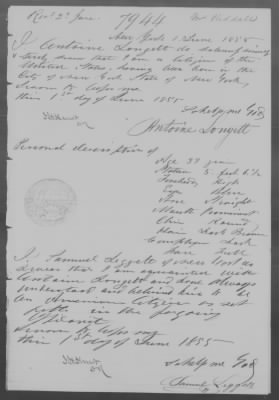 Recd 2d June. 7944 W. Liddell
New York 1 June 1855
I Antoine Longett do solemnly
swear that I am a Citizen of the
United States, having been born in the
City of New York State of New York,
Sworn to before me
this 1st day of June 1855 So help me God
Antoine Longett
Personal description of
Age 33 years
Stature 5 feet
Forehead High
Eyes Blue
Nose Straight
Mouth Prominent
Chin Round
Hair Dark Brown
Complexion Dark
Face Full
I, Samuel Leggett of New York
swear that I am acquainted with
Antoine Longett and have always
understood and believed him to be
An American Citizen as set
forth in the forgoing
affidavit
Sworn to before me So help me God
this 1st day of June 1855
Samuel Leggett